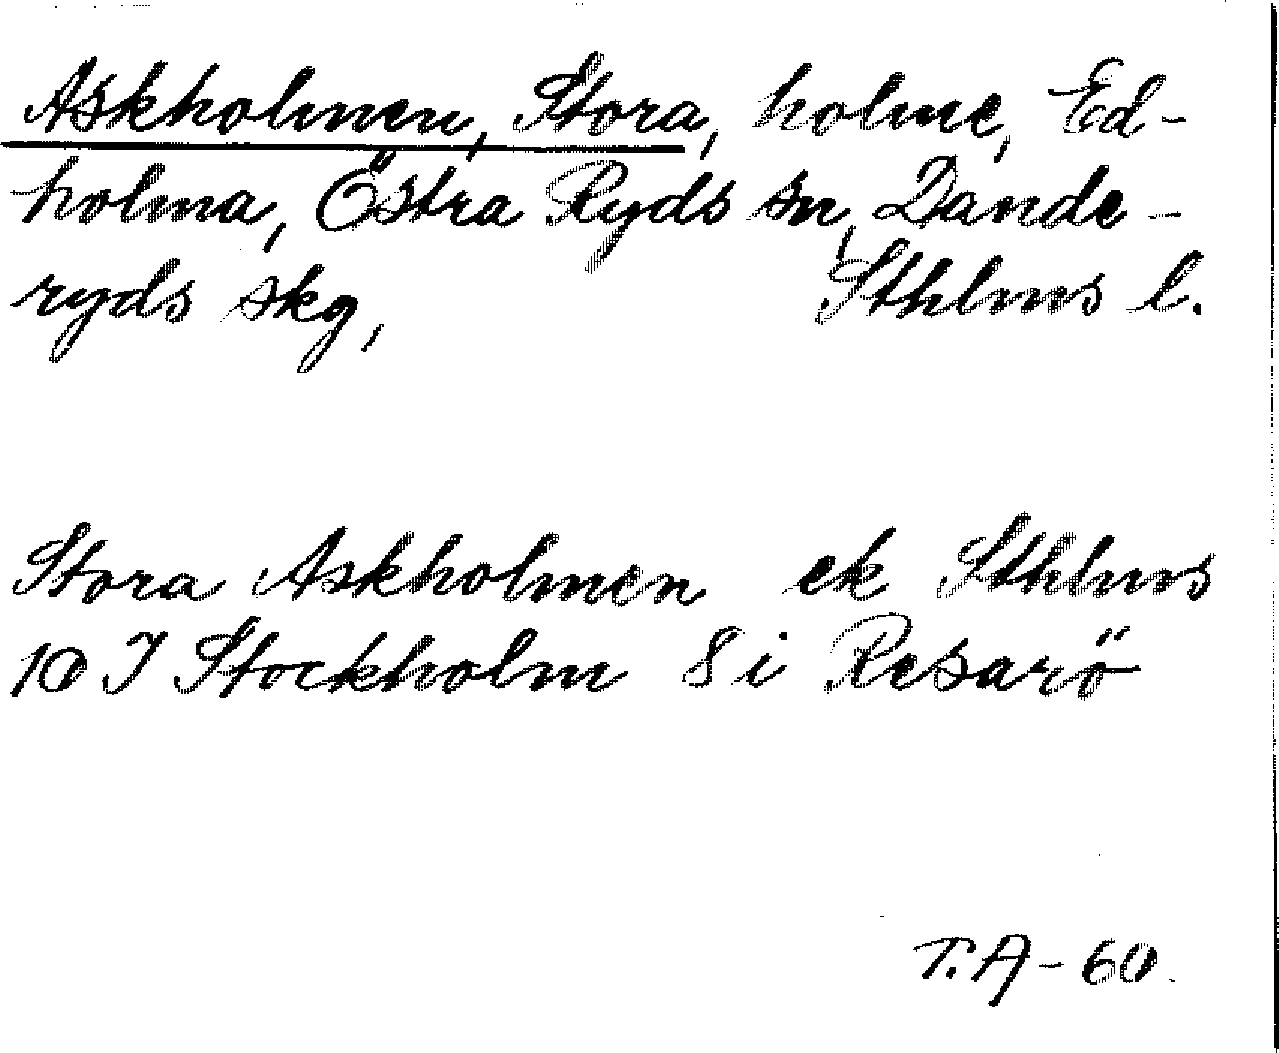 Askholmen, Stora, holme, Ed-
holma, Östra Ryds sn, Dande-
ryds skg, Sthlms l.
Stora Askholmen ek Sthlms
10 I Stockholm 8 i Resarö
T. A - 60.